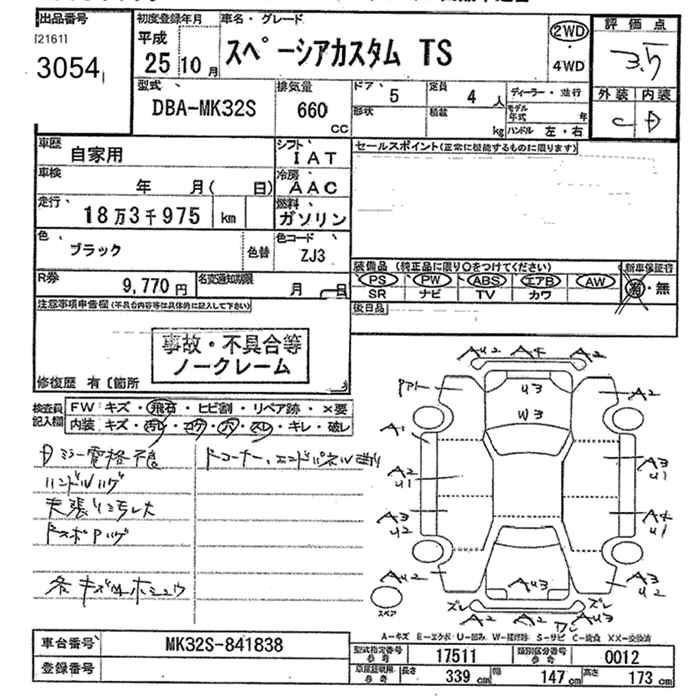 出品番号 初度登録年月 車名・グレード 評価点
[2161]
3054 平成 25 10月 スペーシアカスタム TS 2WD ・ 4WD 3.5
型式 DBA-MK32S 排気量 660 cc
ドア 5 定員 4人 ディーラー・並行 外装 内装
形状 積載 kg モデル年式 年 ハンドル 左・右 C D
車歴 自家用 シフト IAT セールスポイント(正常に機能するものに限ります)
車検 年 月( 日) 冷房 AAC
走行 18万3千975 km 燃料 ガソリン
色 ブラック 色替 色コード ZJ3
装備品(純正品に限り○をつけてください) 新車保証書
R券 9,770円 名変通知期限 月 日
PS PW ABS エアB AW 有・無
SR ナビ TV カワ
注意事項申告欄(不具合内容等は具体的に記入して下さい) 後日品
事故・不具合等
ノークレーム
修復歴 有〔箇所
検査員記入欄 FW キズ・飛石・ヒビ割・リペア跡・×要
内装 キズ・汚レ・コゲ・穴・スレ・キレ・破レ
Dミラー電格不良
ハンドルハゲ
天張り汚れ
各キズ凹
A42 A4 A2
U3
W3
A2
A1
A2
U1
A3
U1
A3
U2
A4
U1
AU2
AU3
A3
U2
スペア
ズレ ズレ
A-キズ E-エクボ U-凹み W-補修跡 S-サビ C-腐食 XX-交換済
車台番号 MK32S-841838
型式指定番号 参考 17511 類別区分番号 参考 0012
登録番号
車庫証明用 参考 長さ 339 cm 幅 147 cm 高さ 173 cm